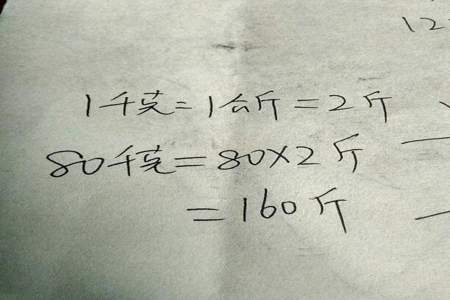 12
1千克=1公斤=2斤
80千克=80×2斤
=160斤